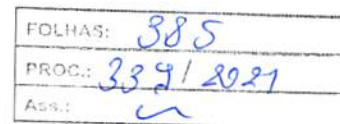 FOLHAS: 385
PROC.: 339/2021
Ass.: